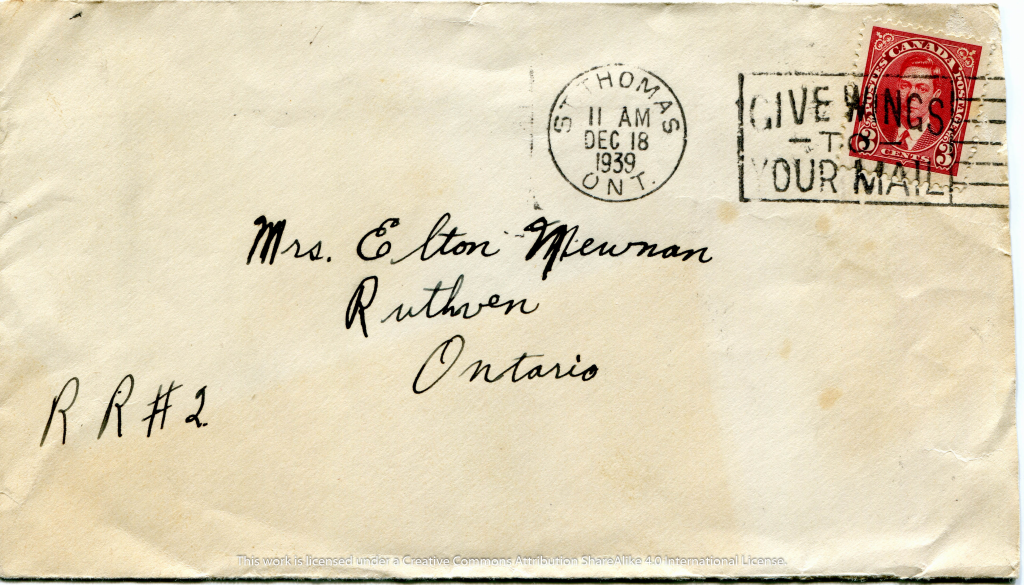 ST. THOMAS
11 AM
DEC 18
1939
ONT.
GIVE WINGS
-TO-
YOUR MAIL
CANADA
POSTES POSTAGE
3 3
CENTS
Mrs. Elton Mewnan
Ruthven
Ontario
R R #2
This work is licensed under a Creative Commons Attribution ShareAlike 4.0 International License.